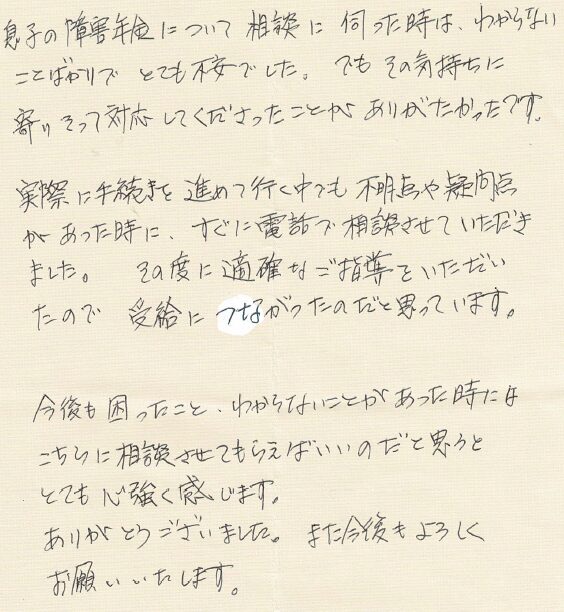 息子の障害年金について相談に伺った時は、わからない
ことばかりでとても不安でした。でもその気持ちに
寄りそって対応してくださったことがありがたかったです。
実際に手続きを進めて行く中でも不明点や疑問点
があった時に、すぐに電話で相談させていただき
ました。その度に適確なご指導をいただい
たので受給につながったのだと思っています。
今後も困ったこと、わからないことがあった時には
こちらに相談させてもらえばいいのだと思うと
とても心強く感じます。
ありがとうございました。また今後もよろしく
お願いいたします。